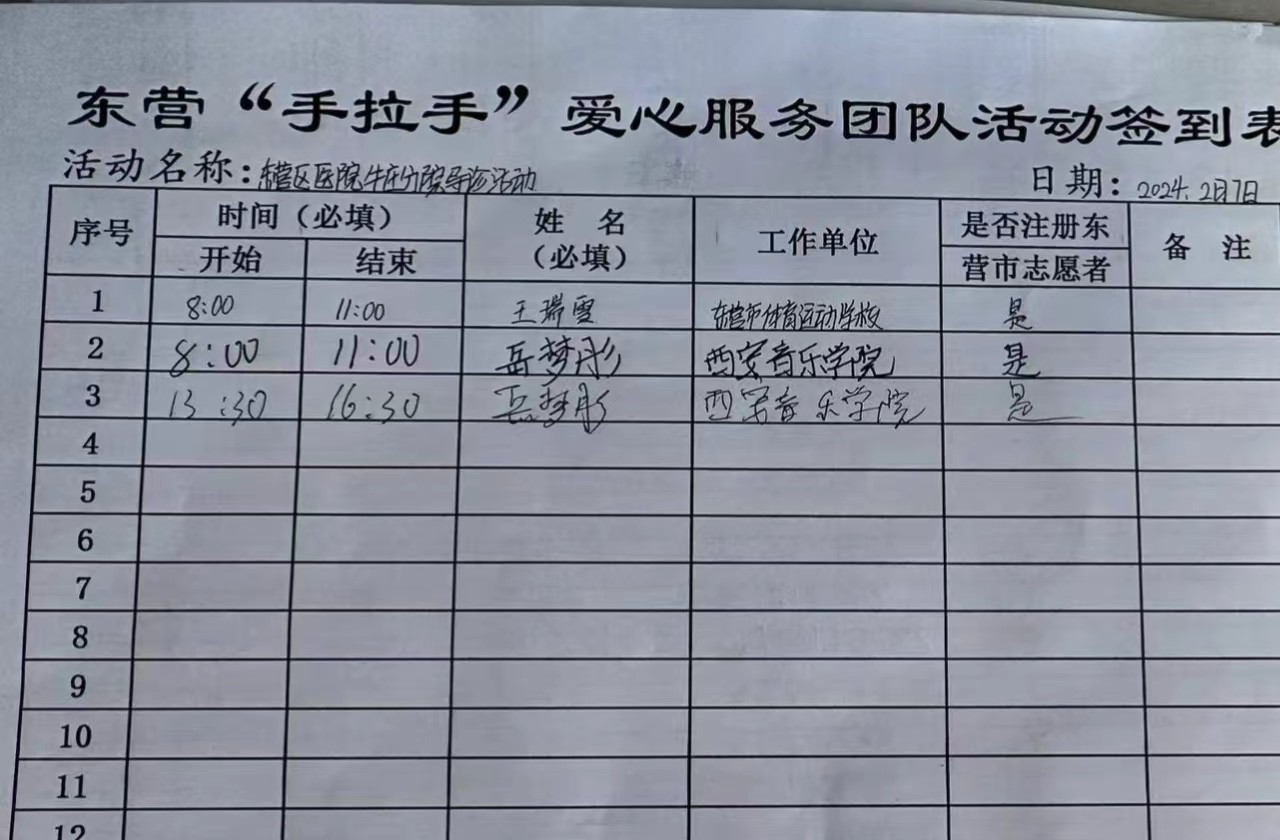 东营“手拉手”爱心服务团队活动签到表
活动名称：东营区医院牛庄分院导诊活动 日期：2024.2月7日
序号 时间（必填） 姓 名（必填） 工作单位 是否注册东营市志愿者 备 注
开始 结束
1 8:00 11:00 王瑞雪 东营市体育运动学校 是
2 8:00 11:00 岳梦彤 西安音乐学院 是
3 13:30 16:30 岳梦彤 西安音乐学院 是
4
5
6
7
8
9
10
11
12